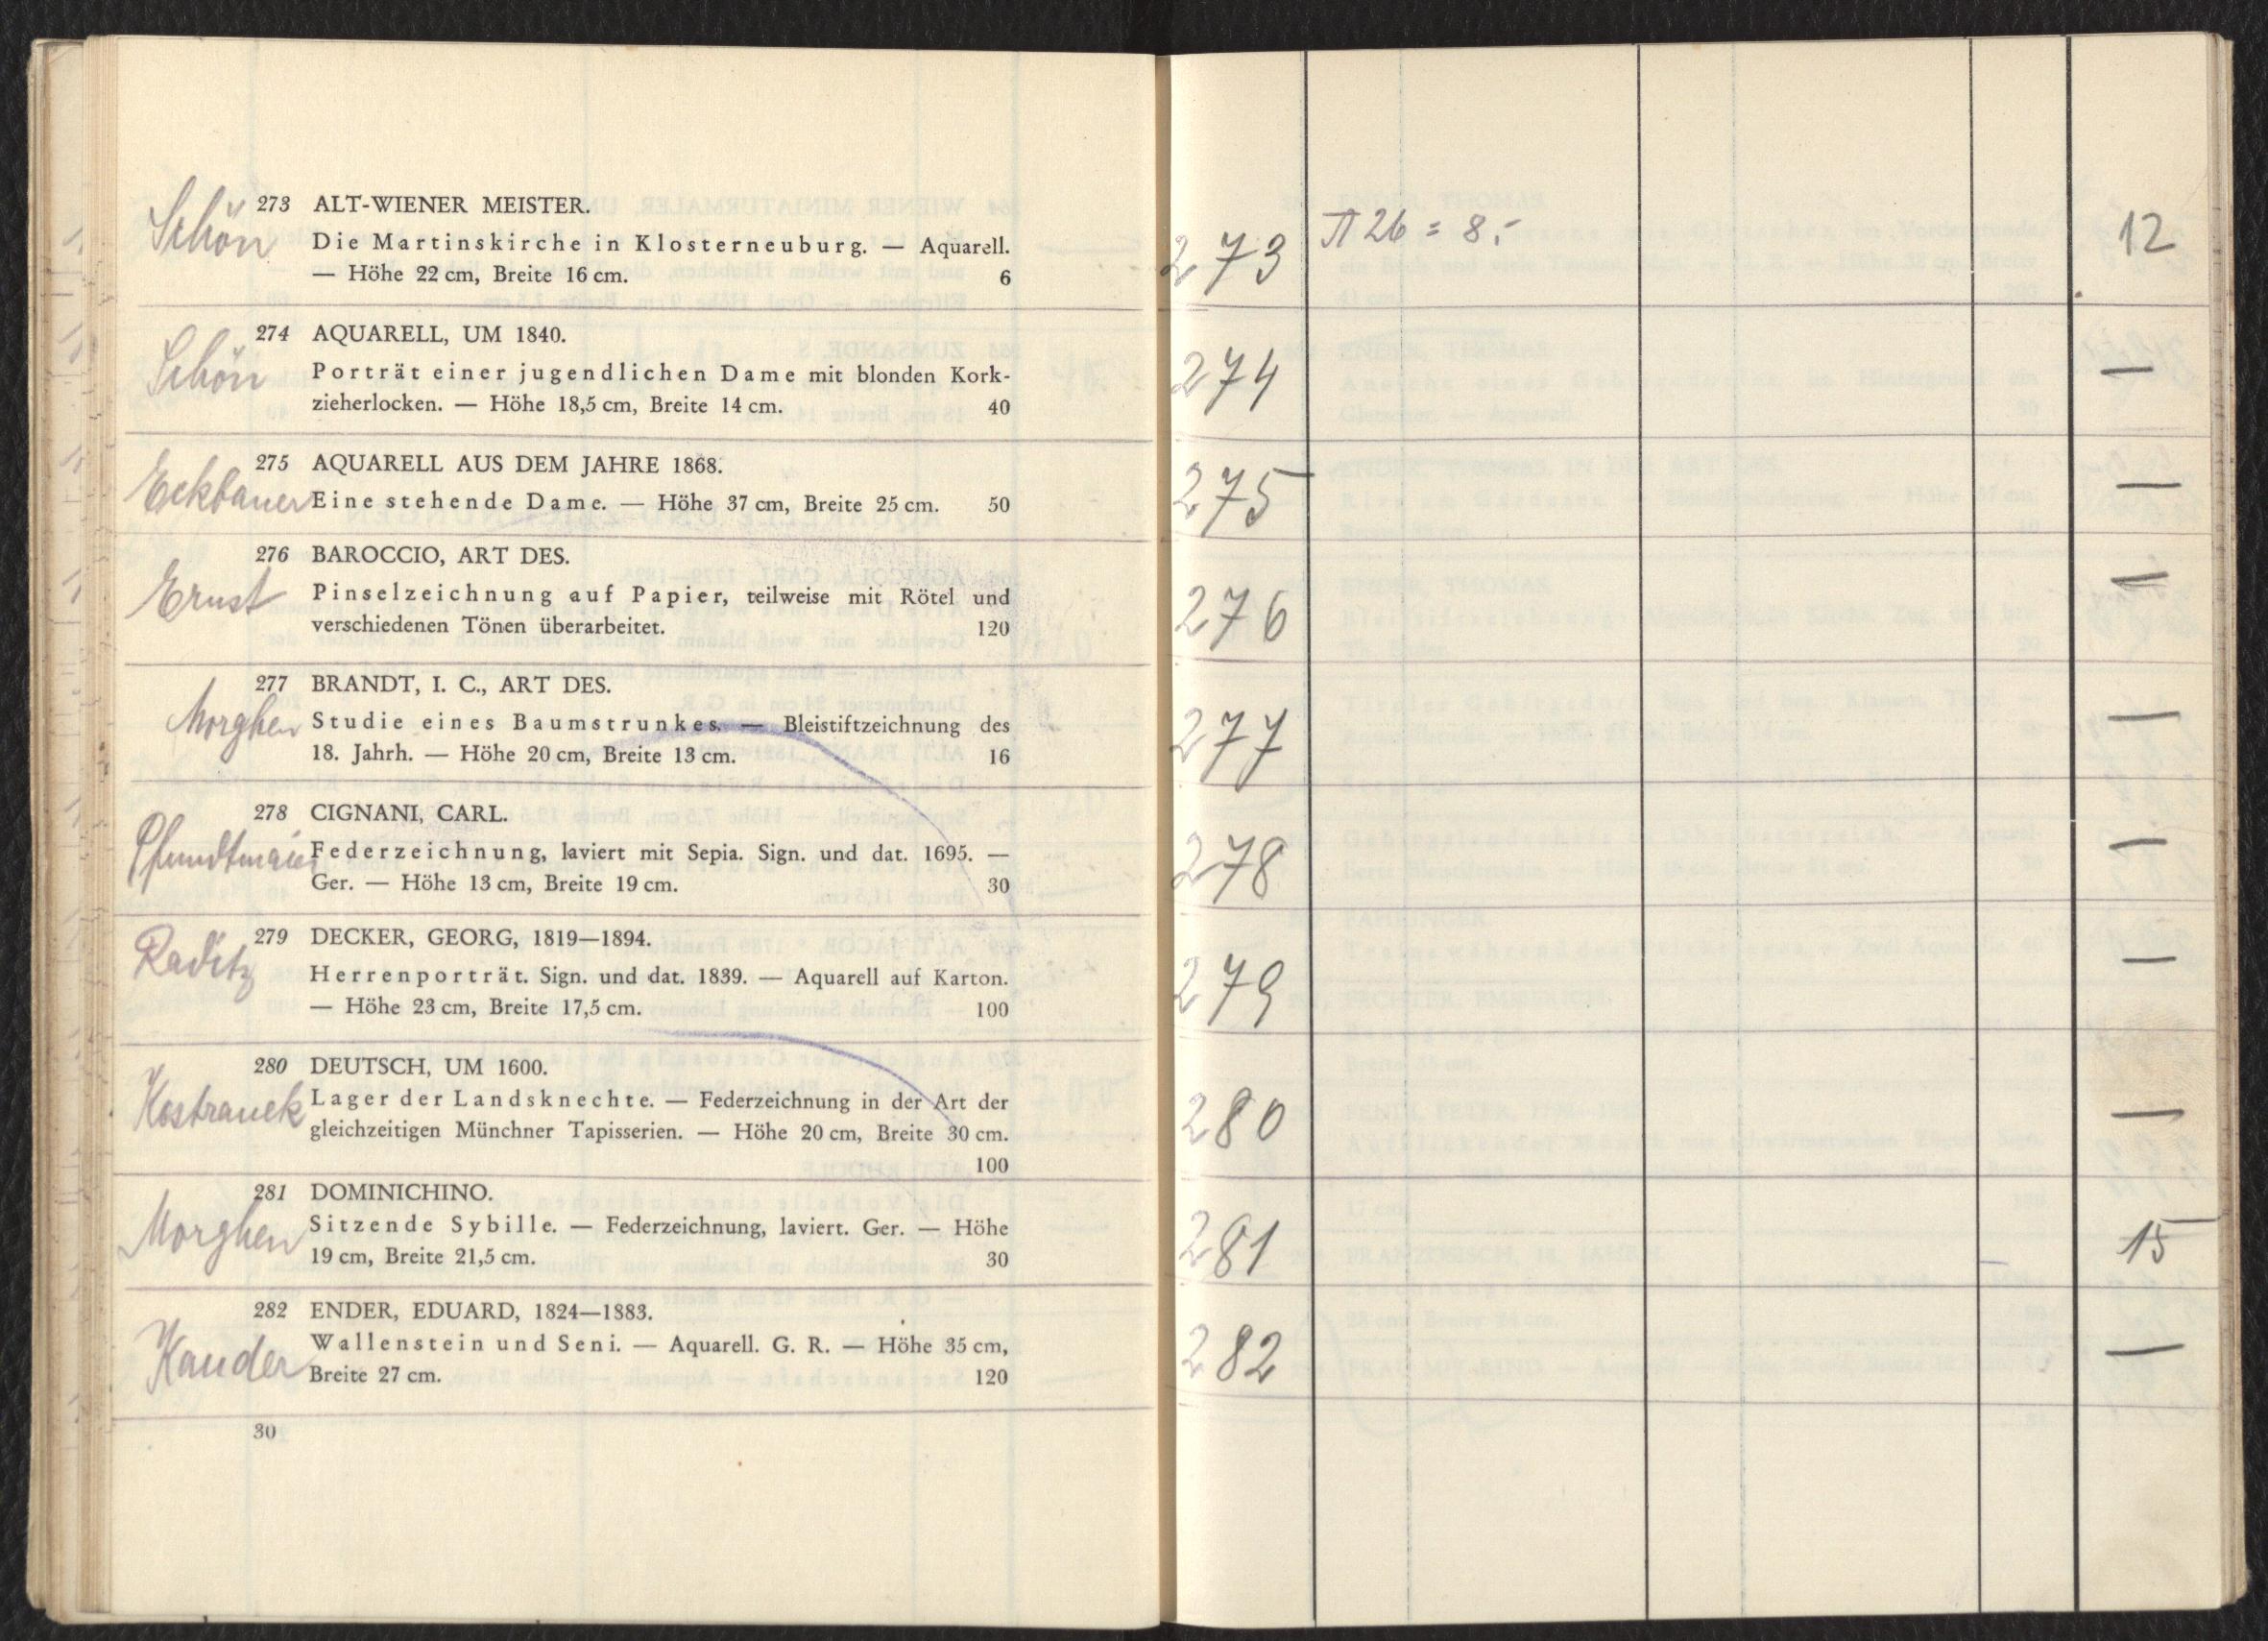 Schön
273 ALT-WIENER MEISTER.
Die Martinskirche in Klosterneuburg. — Aquarell.
— Höhe 22 cm, Breite 16 cm. 6
Schön
274 AQUARELL, UM 1840.
Porträt einer jugendlichen Dame mit blonden Kork-
zieherlocken. — Höhe 18,5 cm, Breite 14 cm. 40
Eckbauer
275 AQUARELL AUS DEM JAHRE 1868.
Eine stehende Dame. — Höhe 37 cm, Breite 25 cm. 50
Ernst
276 BAROCCIO, ART DES.
Pinselzeichnung auf Papier, teilweise mit Rötel und
verschiedenen Tönen überarbeitet. 120
Morghen
277 BRANDT, I. C., ART DES.
Studie eines Baumstrunkes. — Bleistiftzeichnung des
18. Jahrh. — Höhe 20 cm, Breite 13 cm. 16
Pfundtmaier
278 CIGNANI, CARL.
Federzeichnung, laviert mit Sepia. Sign. und dat. 1695. —
Ger. — Höhe 13 cm, Breite 19 cm. 30
Raditz
279 DECKER, GEORG, 1819—1894.
Herrenporträt. Sign. und dat. 1839. — Aquarell auf Karton.
— Höhe 23 cm, Breite 17,5 cm. 100
Kostranek
280 DEUTSCH, UM 1600.
Lager der Landsknechte. — Federzeichnung in der Art der
gleichzeitigen Münchner Tapisserien. — Höhe 20 cm, Breite 30 cm.
100
Morghen
281 DOMINICHINO.
Sitzende Sybille. — Federzeichnung, laviert. Ger. — Höhe
19 cm, Breite 21,5 cm. 30
Kauder
282 ENDER, EDUARD, 1824—1883.
Wallenstein und Seni. — Aquarell. G. R. — Höhe 35 cm,
Breite 27 cm. 120
30
273 26 = 8,- 12
274 —
275 —
276 —
277 —
278 —
279 —
280 —
281 — 15
282 —